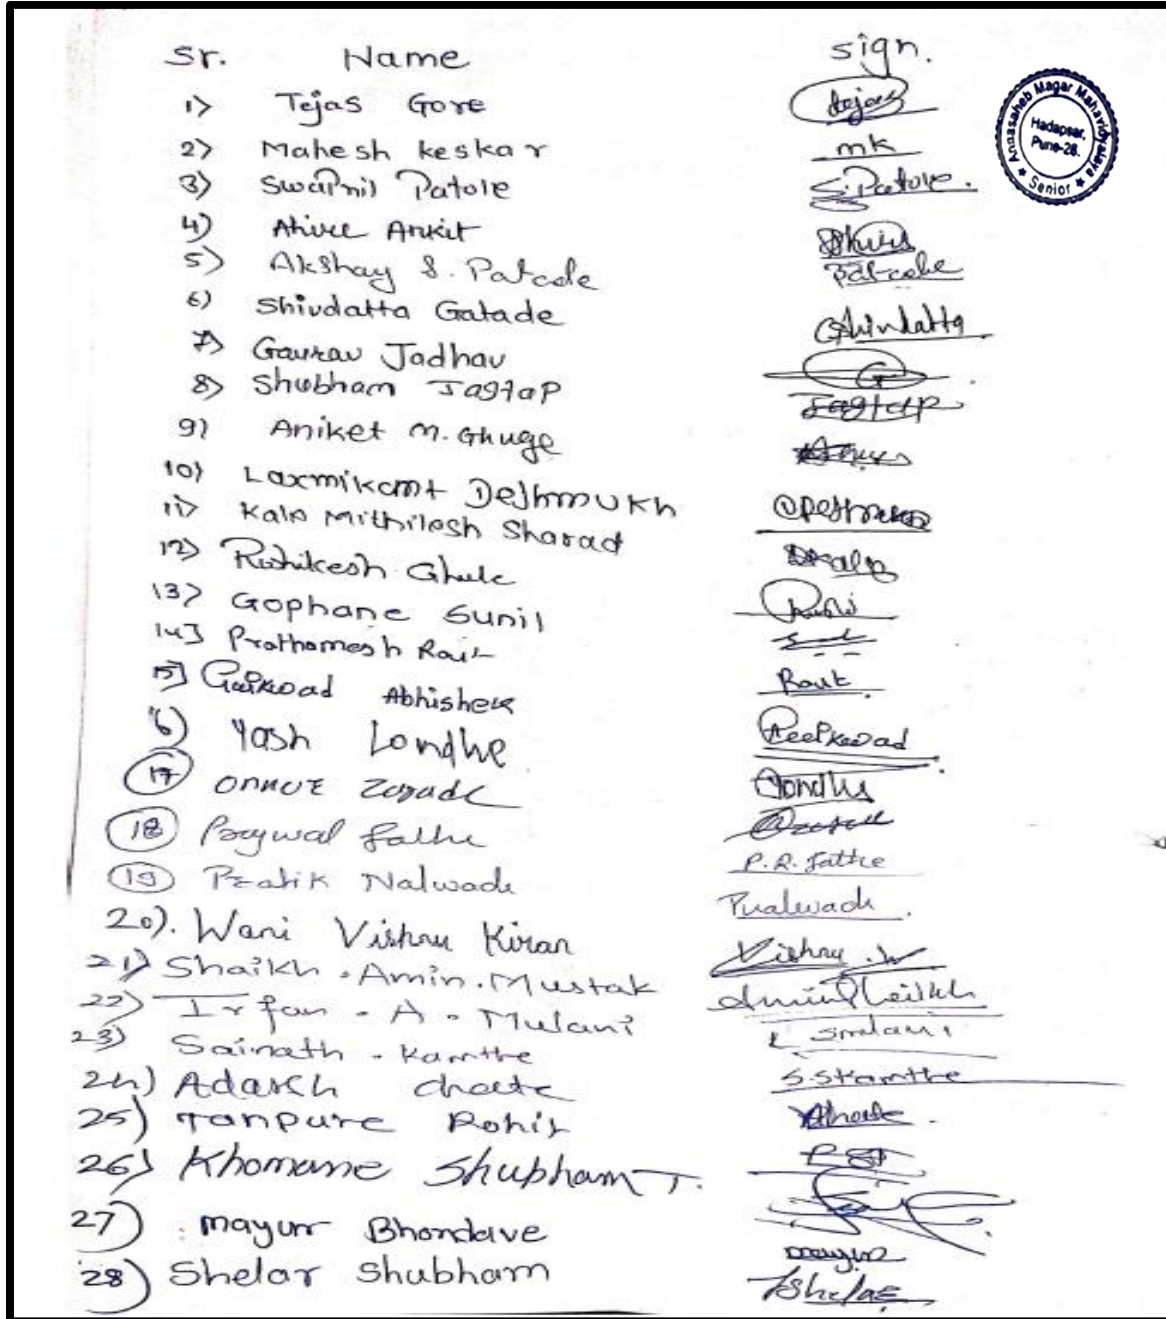 Sr. Name sign.
1) Tejas Gore Tejas
2) Mahesh keskar mk
3) Swapnil Patole S. Patole.
4) Ankit
5) Akshay S. Patole
6) Shivdatta Gatade Shivdatta
7) Gaurav Jadhav G
8) Shubham Jagtap Jagtap
9) Aniket M. Ghuge
10) Laxmikant Deshmukh
11) Kale Mithilesh Sharad
12) Rushikesh Ghule
13) Gophane Sunil
14] Prathamesh Raut
15] Gaikwad Abhishek Raut.
16) Yash Londhe
17 Londhe
18
19 Pratik Nalwade
20). Wani Vishnu Kiran
21) Shaikh . Amin . Mustak Vishnu .W
22) Irfan . A . Mulani Amin Sheikh
23) Sainath . Kamthe
24) Adarsh S.S Kamthe
25) Tanpure Rohit
26) Khomane Shubham T.
27) mayur Bhondave
28) Shelar Shubham mayur
Shelar
Annasaheb Magar Mahavidyalaya
Hadapsar,
Pune-28.
★ Senior ★